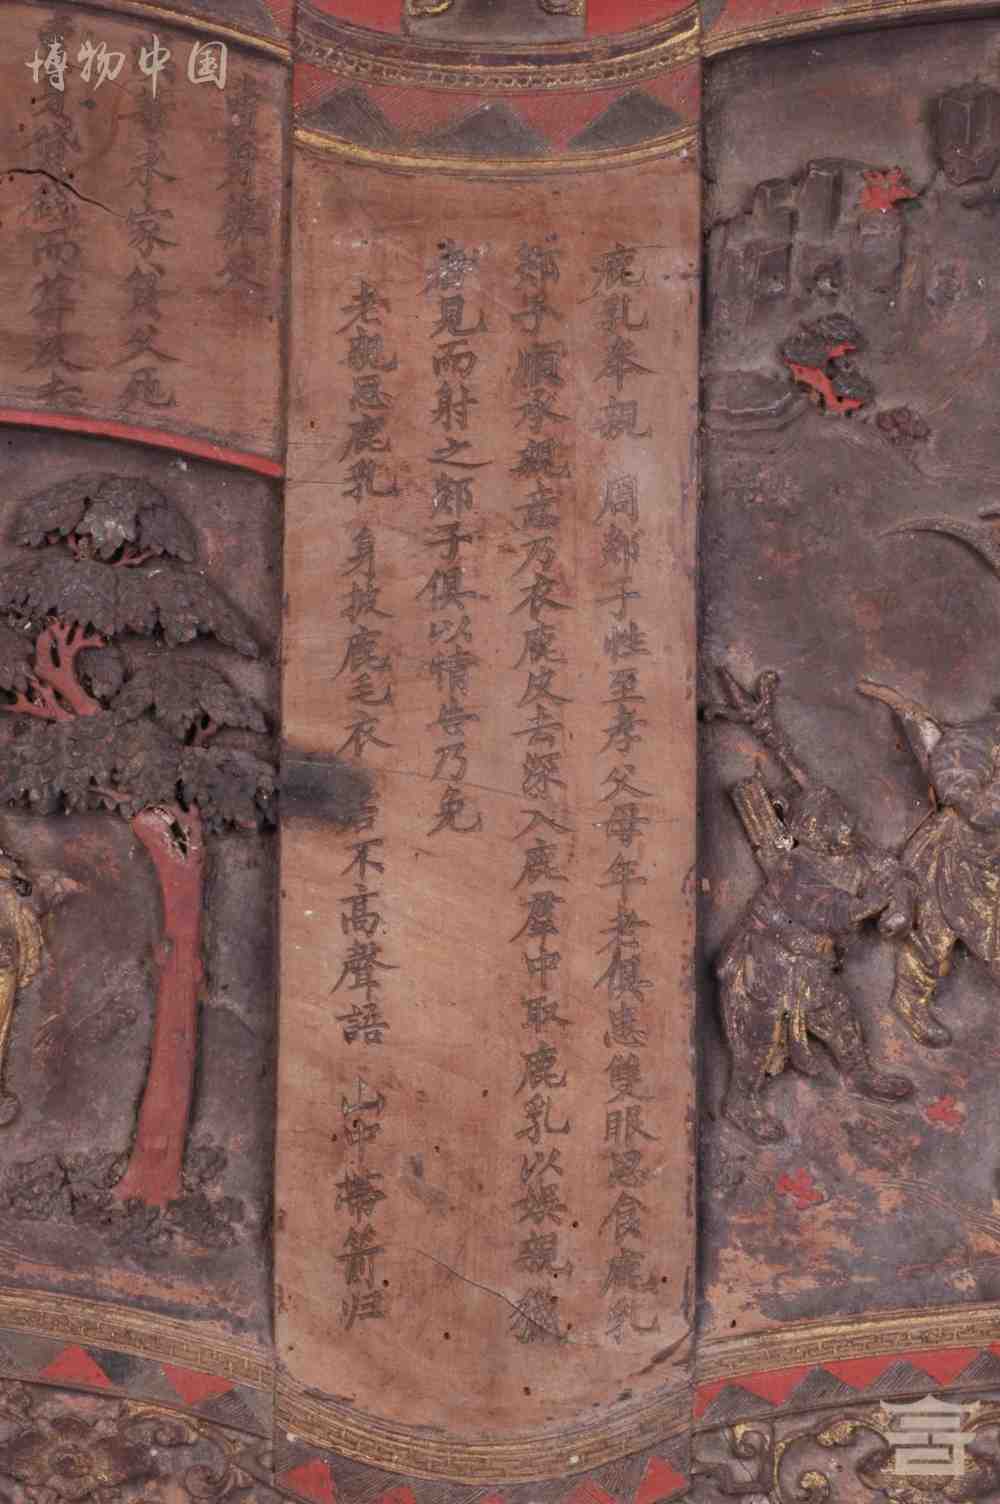 博物中国
鹿乳奉親 周郯子性至孝父母年老俱患雙眼思食鹿乳
郯子順承親意乃衣鹿皮去深入鹿羣中取鹿乳以娱親獵
者見而射之郯子俱以情告乃免
老親思鹿乳 身披鹿毛衣 若不高聲語 山中帶箭归
家貧父死
而葬及去